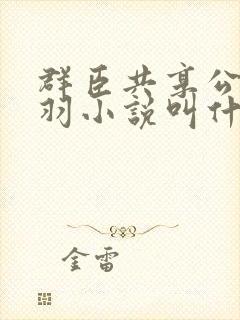 群臣共享公
羽小說叫什
金雷